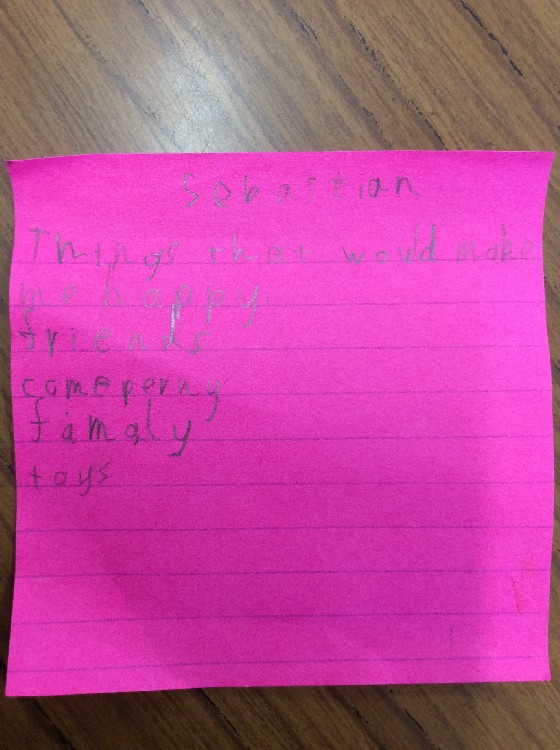 Sebastian
Things that would make
me happy.
friends
comeperny
famaly
toys